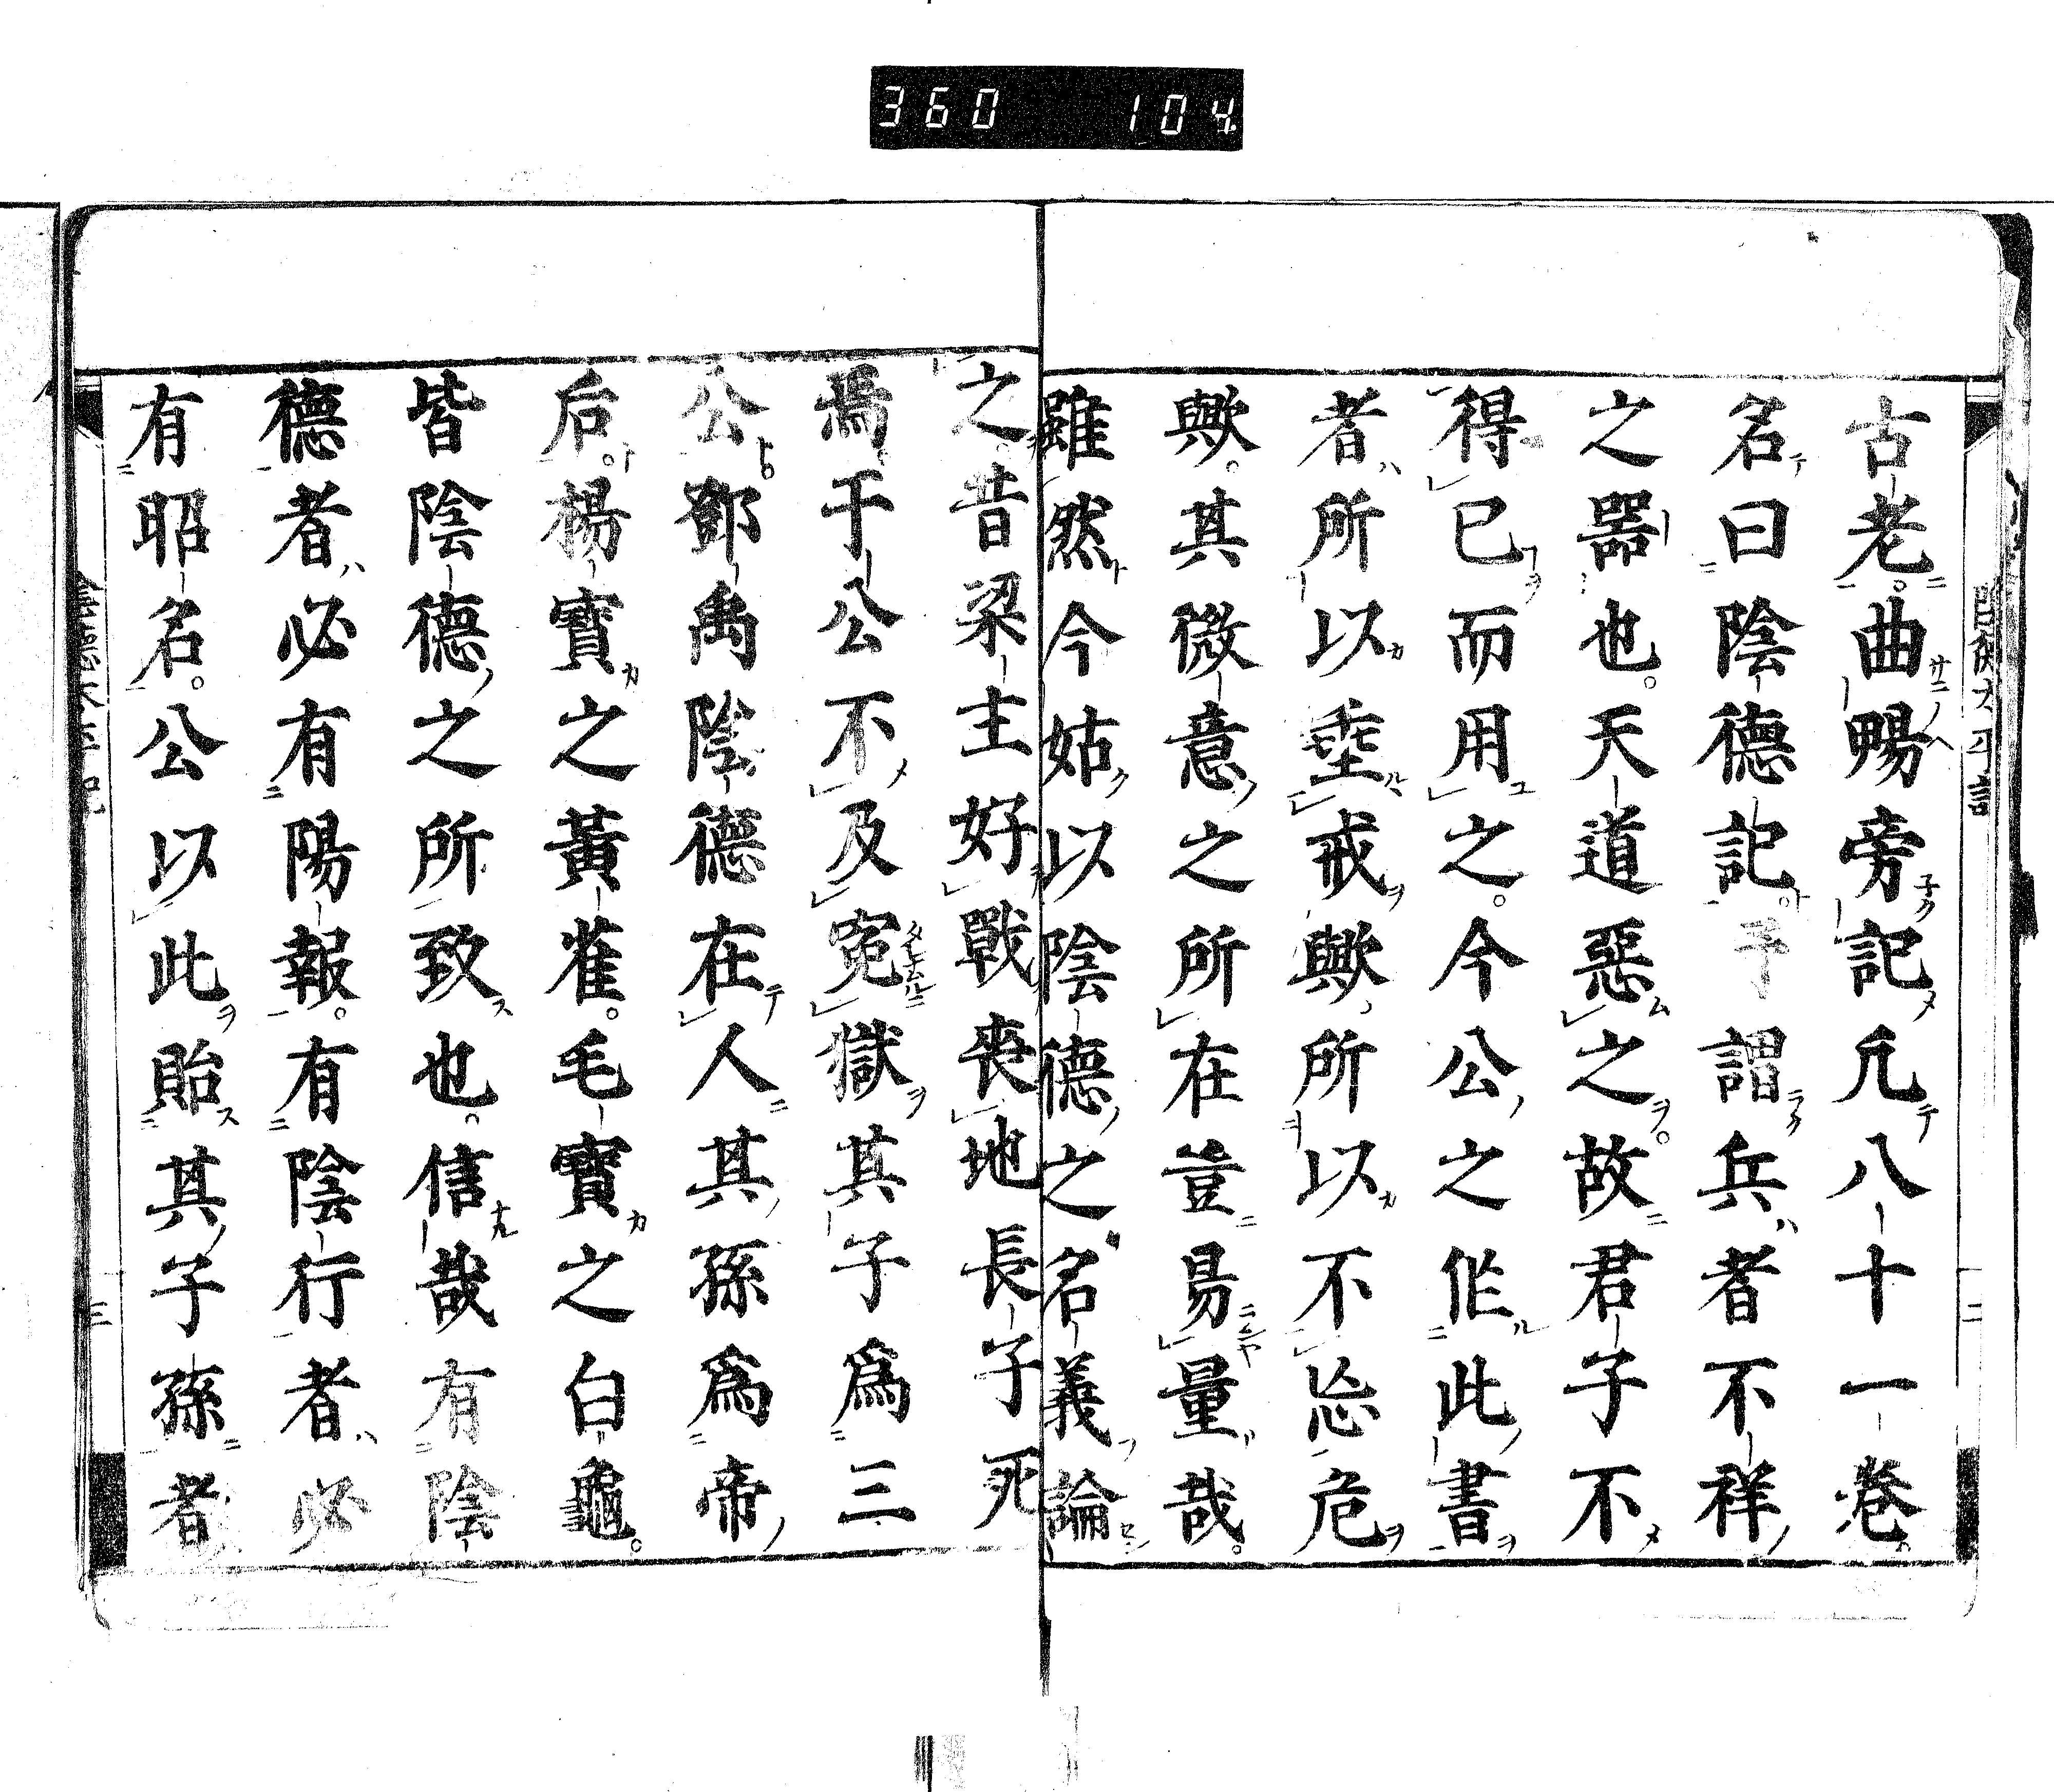 360 104
古老。曲暢旁記凢八十一卷。
名曰陰德記。予謂兵者不祥
之器也。天道惡之。故君子不
得已而用之。今公之作此書
者所以垂戒歟、所以不忘危
歟。其微意之所在豈易量哉。
雖然今姑以陰德之名義論
之。昔梁主好戰喪地長子死
焉于公不及寃獄其子爲三
公。鄧禹陰德在人其孫爲帝
后。楊寶之黃雀。毛寶之白龜。
皆陰德之所致也。信哉有陰
德者必有陽報。有陰行者必
有昭名。公以此貽其子孫者